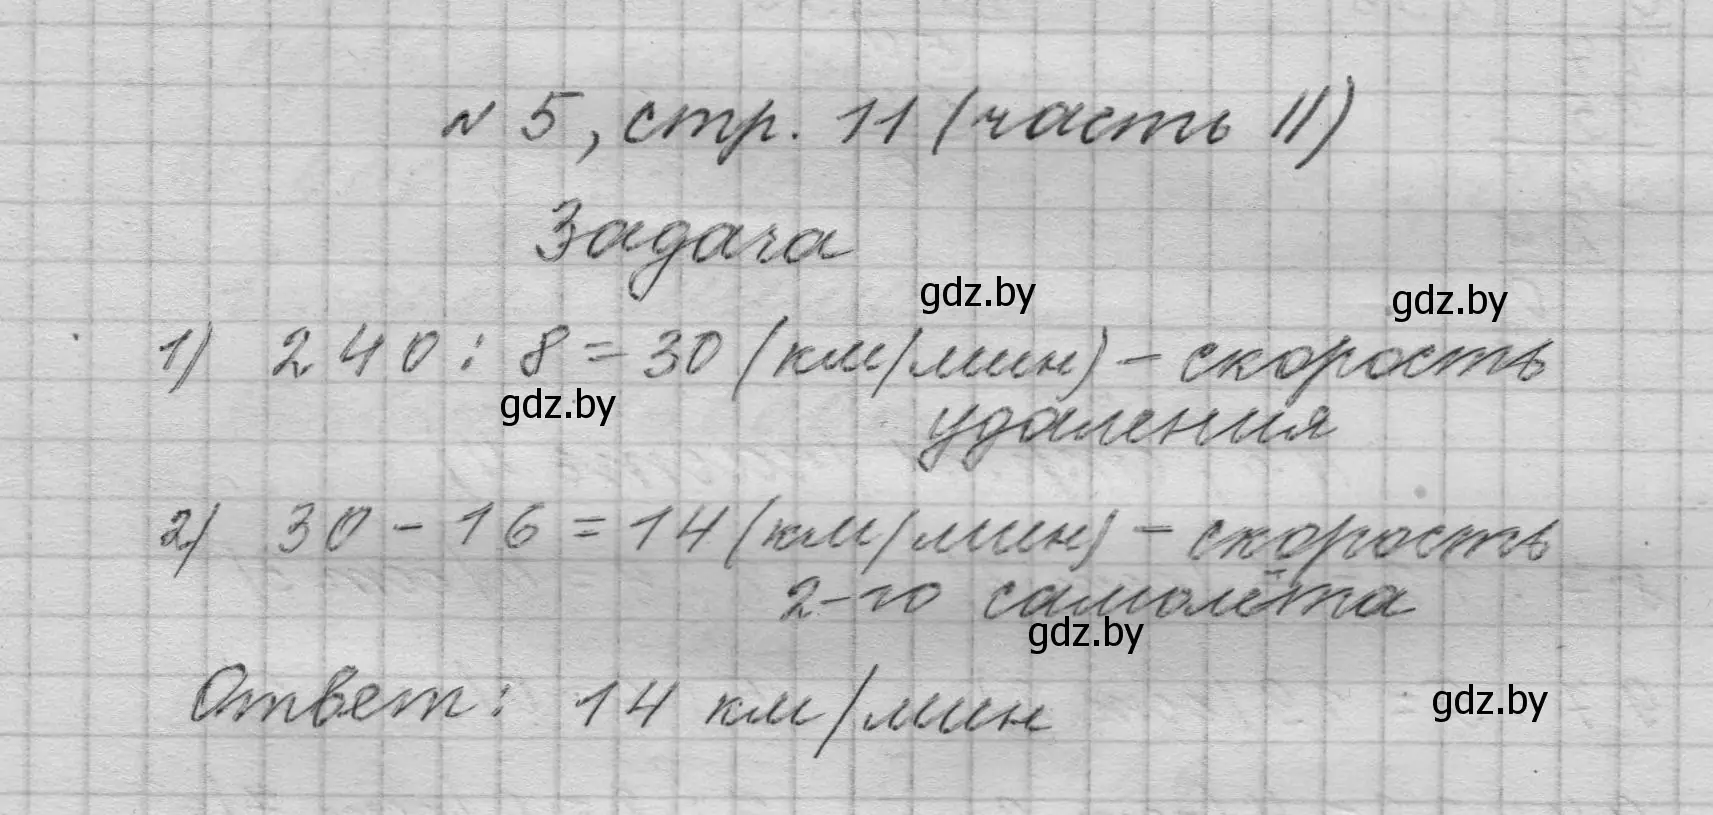 № 5, стр. 11 (часть II)
Задача
gdz.by
gdz.by
1) 240 : 8 = 30 (км/мин) - скорость
gdz.by
удаления
2) 30 - 16 = 14 (км/мин) - скорость
2-го самолёта
gdz.by
Ответ: 14 км/мин
gdz.by